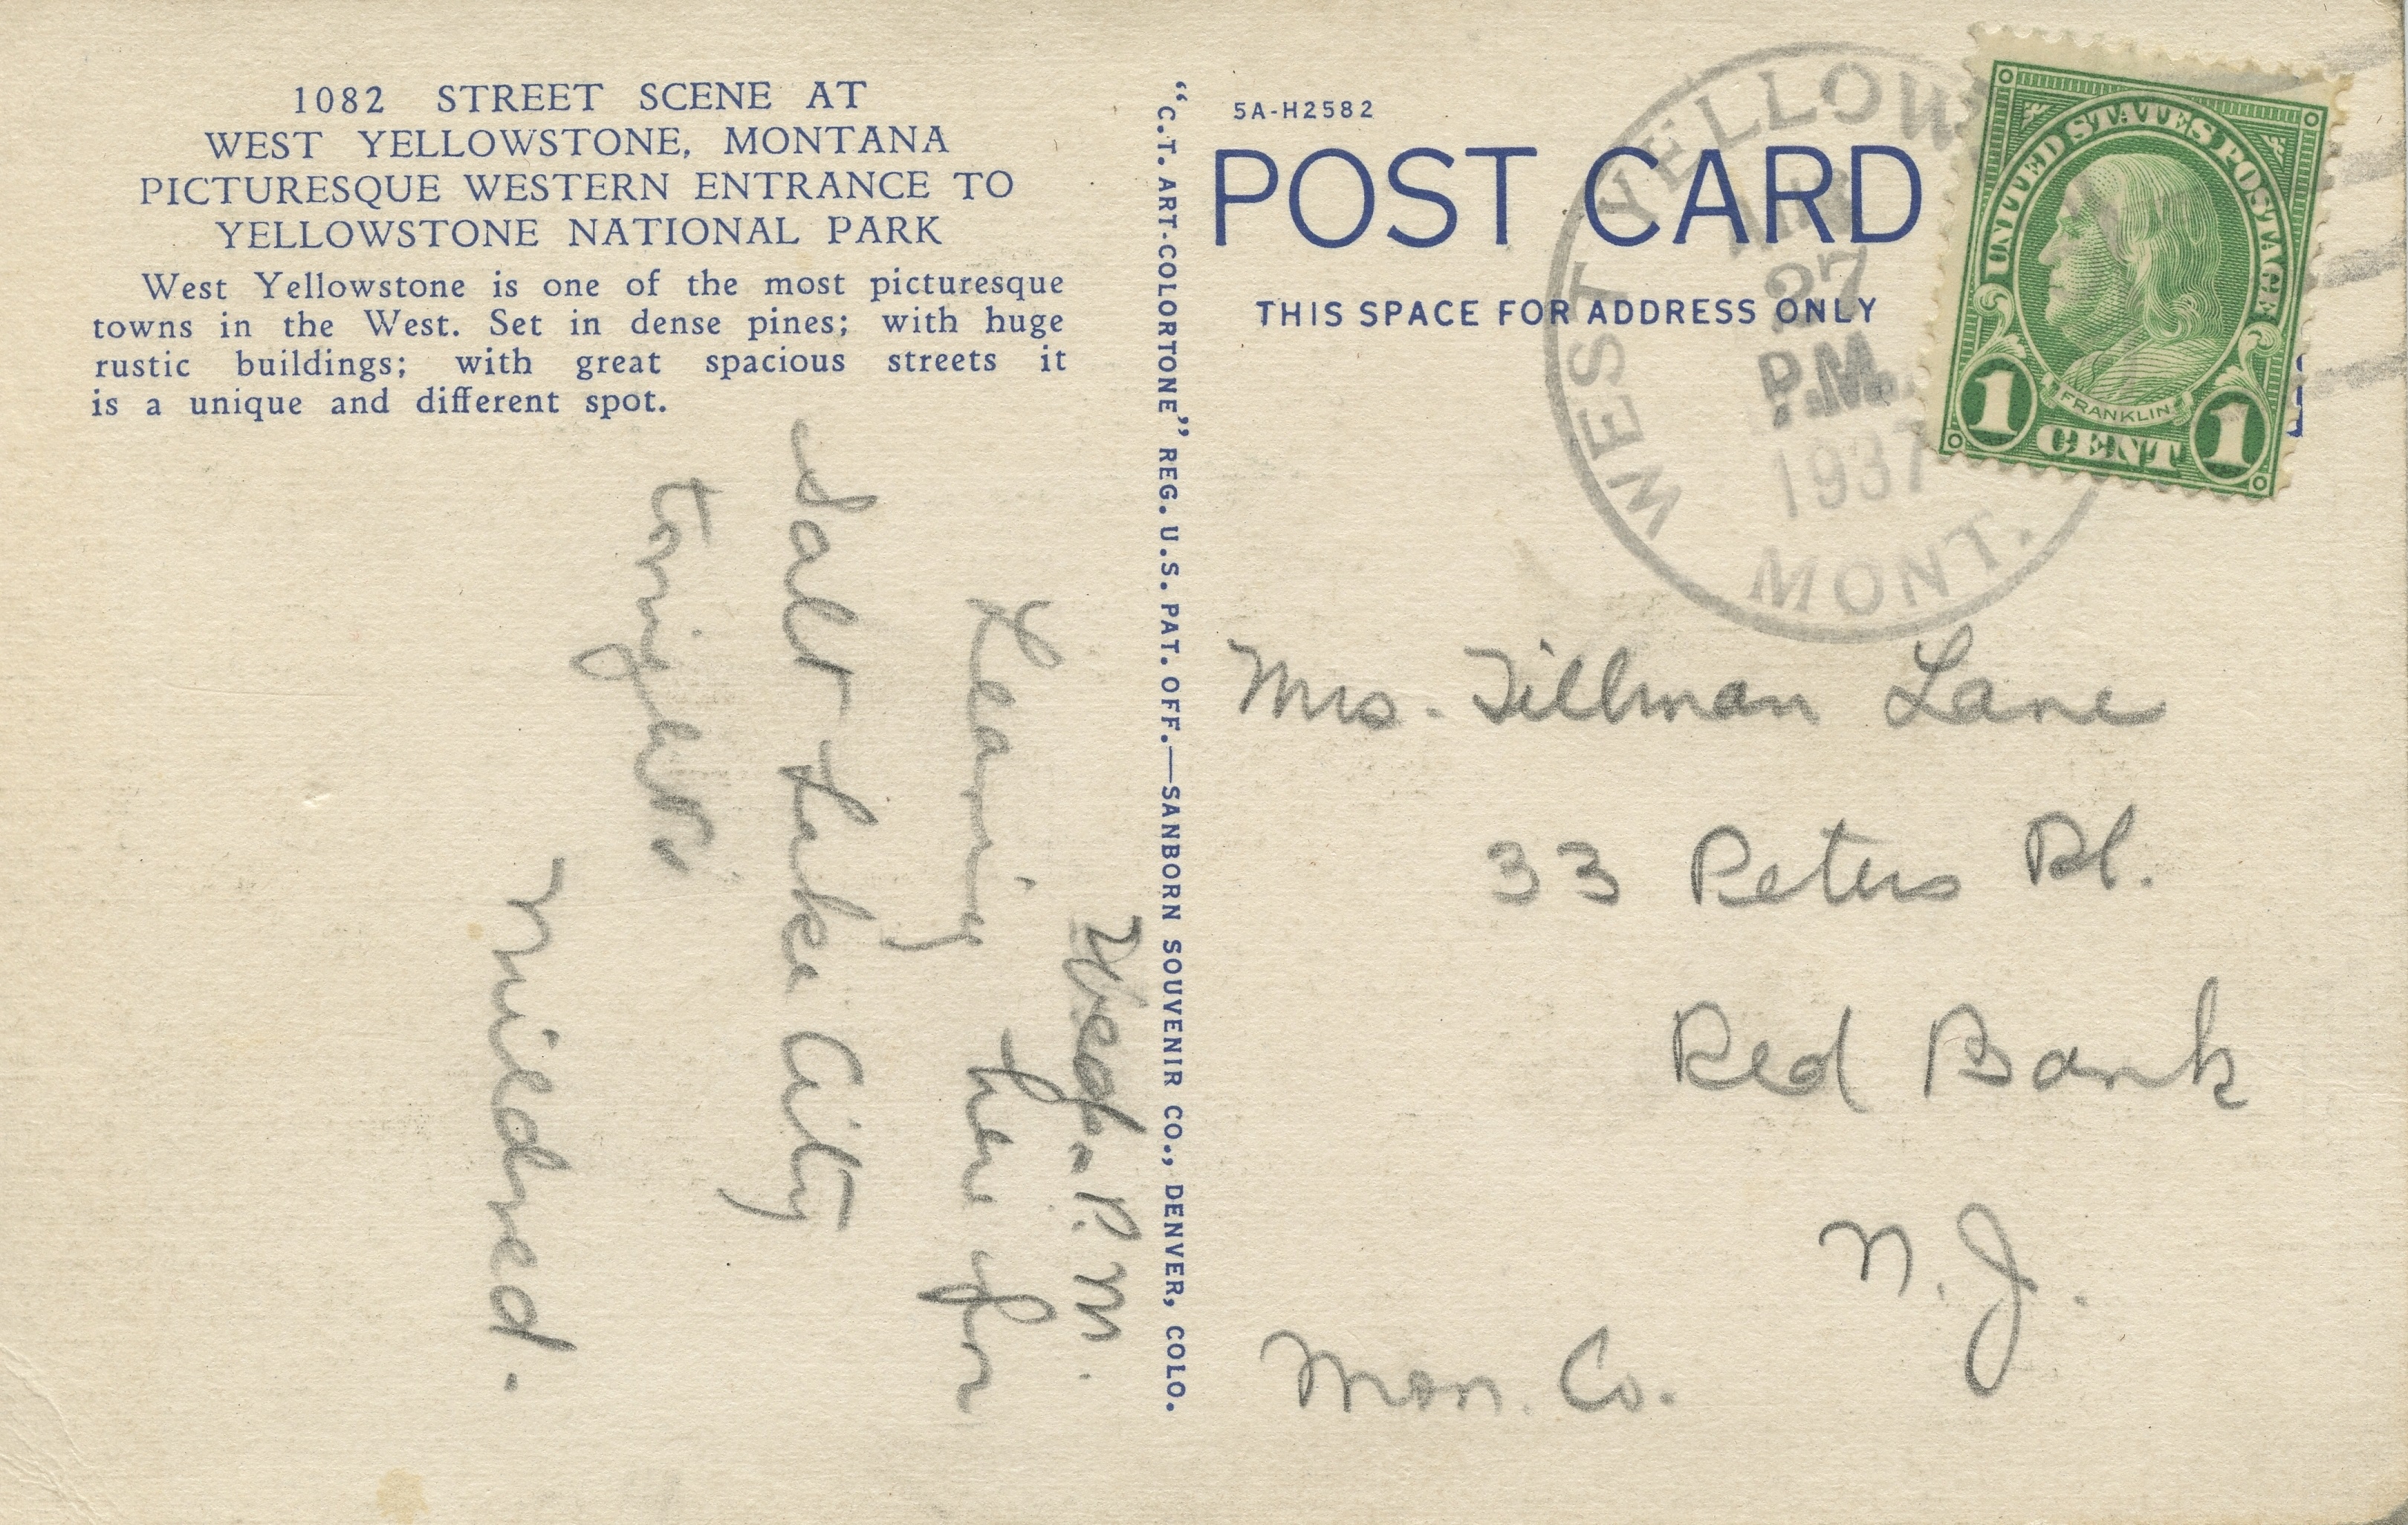 1082 STREET SCENE AT
WEST YELLOWSTONE, MONTANA
PICTURESQUE WESTERN ENTRANCE TO
YELLOWSTONE NATIONAL PARK
West Yellowstone is one of the most picturesque
towns in the West. Set in dense pines; with huge
rustic buildings; with great spacious streets it
is a unique and different spot.
Wed. P.M.
Leaving here for
Salt Lake City
tonight.
Mildred.
"C.T. ART-COLORTONE" REG. U.S. PAT. OFF.—SANBORN SOUVENIR CO., DENVER, COLO.
5A-H2582
POST CARD
THIS SPACE FOR ADDRESS ONLY
WEST YELLOW
27
P.M.
1937
MONT.
UNITED STATES POSTAGE
FRANKLIN
1 CENT 1
Mrs. Tillman Lane
33 Peters Pl.
Red Bank
N.J.
Mon. Co.